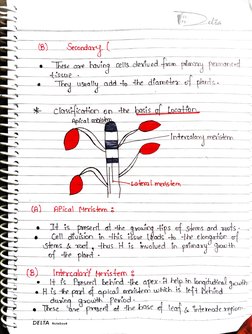 Delta
(B) Secondary (
• These are having cells derived from primary permanent
tissue.
• They usually add to the diameter of plants.
* Classification on the basis of location
Apical meristem
Intercalary meristem
Lateral meristem
(A) Apical Meristem :
• It is present at the growing tips of stems and roots.
• Cell division in this tissue leads to the elongation of
stems & root, thus it is involved in primary growth
of the plant.
(B) Intercalary Meristem :
• It is Present behind the apex. It help in longitudinal growth
• It is the part of apical meristem which is left behind
during growth Period.
• These are present at the base of leaf & internode region.
DELTA Notebook